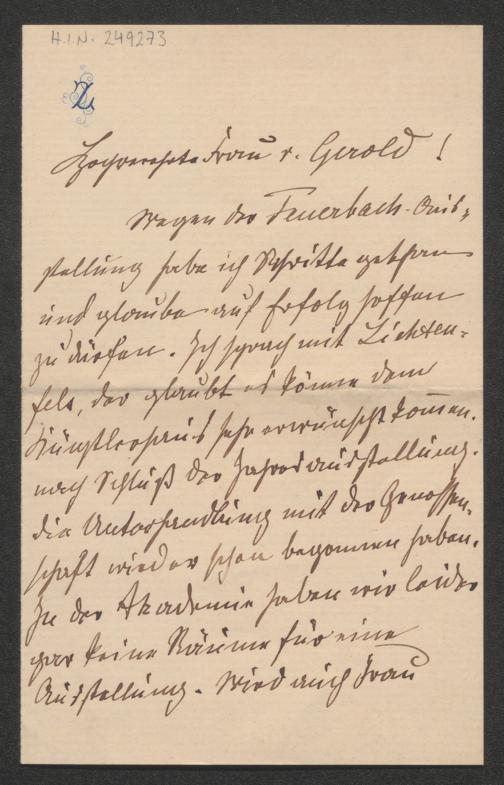 H.I.N. 249273
Z
Hochverehrte Frau v. Gerold!
Wegen der Feuerbach-Aus-
stellung habe ich Schritte gethan
und glaube auf Erfolg hoffen
zu dürfen. Ich sprach mit Lichten-
fels, der glaubt es könne dem
Künstlerhaus sehr erwünscht kommen.
nach Schluß der Jahresausstellung.
die Unterhandlung mit der Genossen-
schaft wieder schon begonnen haben.
In der Akademie haben wir leider
gar keine Räume für eine
Ausstellung. Wird auch Frau